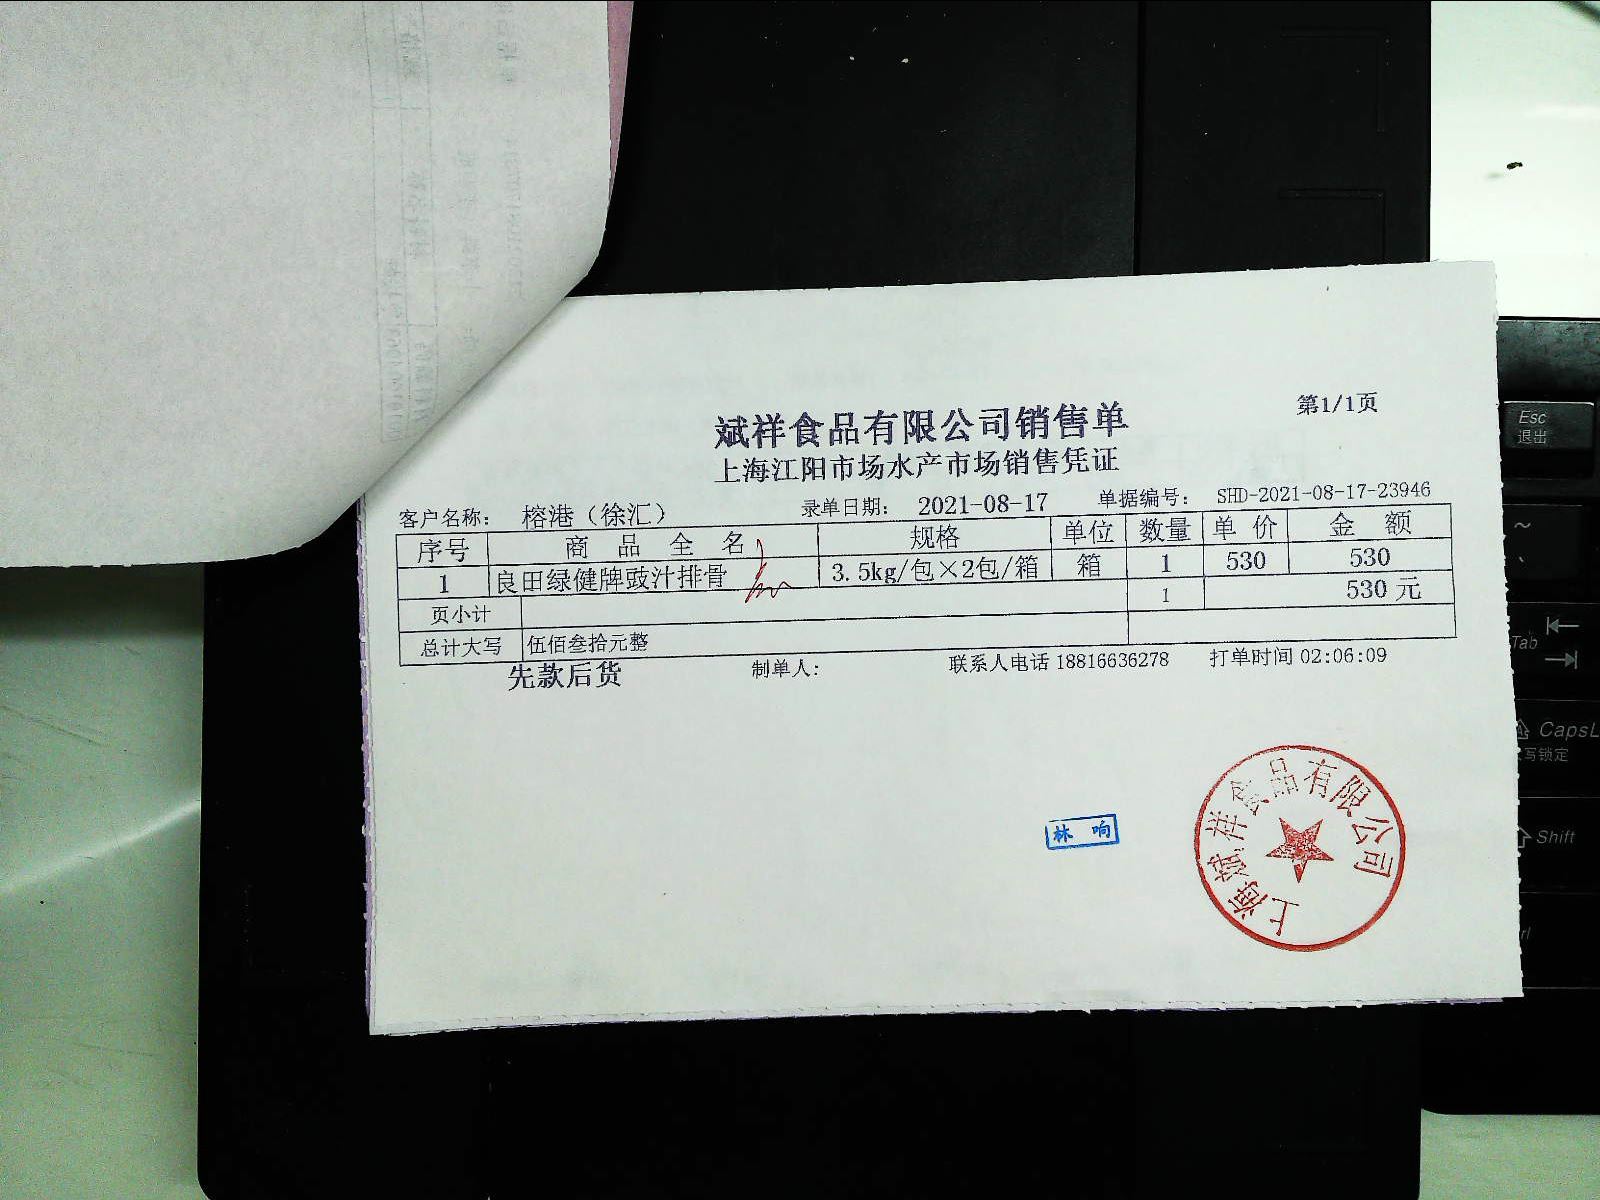 第1/1页
斌祥食品有限公司销售单
上海江阳市场水产市场销售凭证
客户名称： 榕港（徐汇） 录单日期： 2021-08-17 单据编号： SHD-2021-08-17-23946
序号 商 品 全 名 规格 单位 数量 单 价 金 额
1 良田绿健牌豉汁排骨 3.5kg/包×2包/箱 箱 1 530 530
页小计 1 530元
总计大写 伍佰叁拾元整
先款后货 制单人： 联系人电话 18816636278 打单时间 02:06:09
林 响
上海斌祥食品有限公司
Esc
退出
~
Tab
CapsL
写锁定
Shift